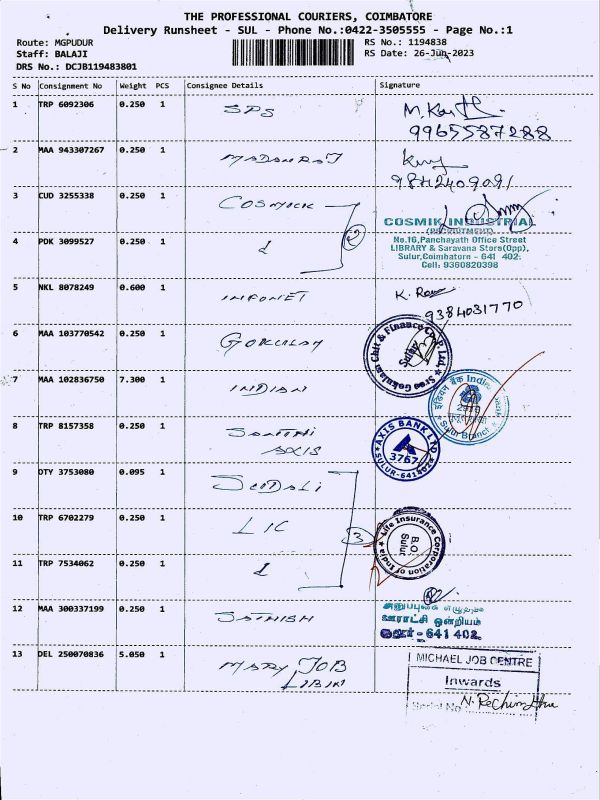 THE PROFESSIONAL COURIERS, COIMBATORE
Delivery Runsheet - SUL - Phone No.:0422-3505555 - Page No.:1
Route: MGPUDUR
RS No.: 1194838
Staff: BALAJI
RS Date: 26-Jun-2023
DRS No.: DCJB119483801
S No Consignment No Weight PCS Consignee Details Signature
1 TRP 6092306 0.250 1 SPS
9965587288
2 MAA 943307267 0.250 1
9842409091
3 CUD 3255338 0.250 1 COSMICK
COSMIK INDUSTRIAL
(RECRUITMENT)
No.16,Panchayath Office Street
4 PDK 3099527 0.250 1 2
LIBRARY & Saravana Stors(Opp),
Sulur,Coimbatore - 641 402.
Cell: 9360820398
5 NKL 8078249 0.600 1 INFONET
9384031770
6 MAA 103770542 0.250 1 GOKULAM
Sree Gokulam Chit & Finance Co. P. Ltd.
Sulur
7 MAA 102836750 7.300 1 INDIAN
Sulur Branch
8 TRP 8157358 0.250 1
AXIS
AXIS BANK LTD
3767
SULUR-641402
9 OTY 3753080 0.095 1
10 TRP 6702279 0.250 1 LIC 3
Life Insurance Corporation of India
B.O.
Sulur
11 TRP 7534062 0.250 1
12 MAA 300337199 0.250 1 SATHISH
ஊராட்சி ஒன்றியம்
சூலூர் - 641 402
13 DEL 250070836 5.050 1 MARY JOB
LIBIN
MICHAEL JOB CENTRE
Inwards
Serial No